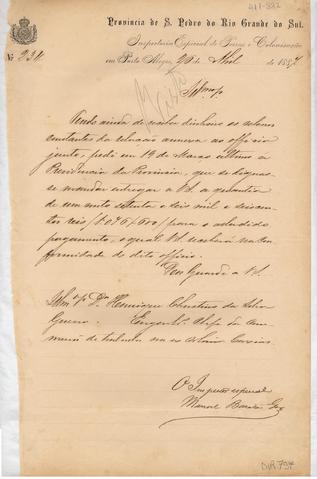 411-882
Provincia de S. Pedro do Rio Grande do Sul.
Inspectoria Especial de Terras e Colonisação
Nº 234. em Porto Alegre, 26 de Abril de 1887
Illmo Sr.
Tendo ainda de receber dinheiro os colonos
constantes da relação annexa ao officio
junto, pedi em 19 de Março ultimo a
Presidencia da Provincia, que se dignas-
se mandar entregar a V.S. a quantia
de um conto setenta e seis mil e seiscen-
tos reis para o alludido
pagamento, o qual V.S. realisará na con-
formidade do dito officio.
Deus Guarde a V.S.
Illmo Sr. Dr. Henrique Christino da Silva
Engenheiro Chefe da Com-
missão de na ex colonia Caxias
O Inspector especial
Manoel
DIR.794